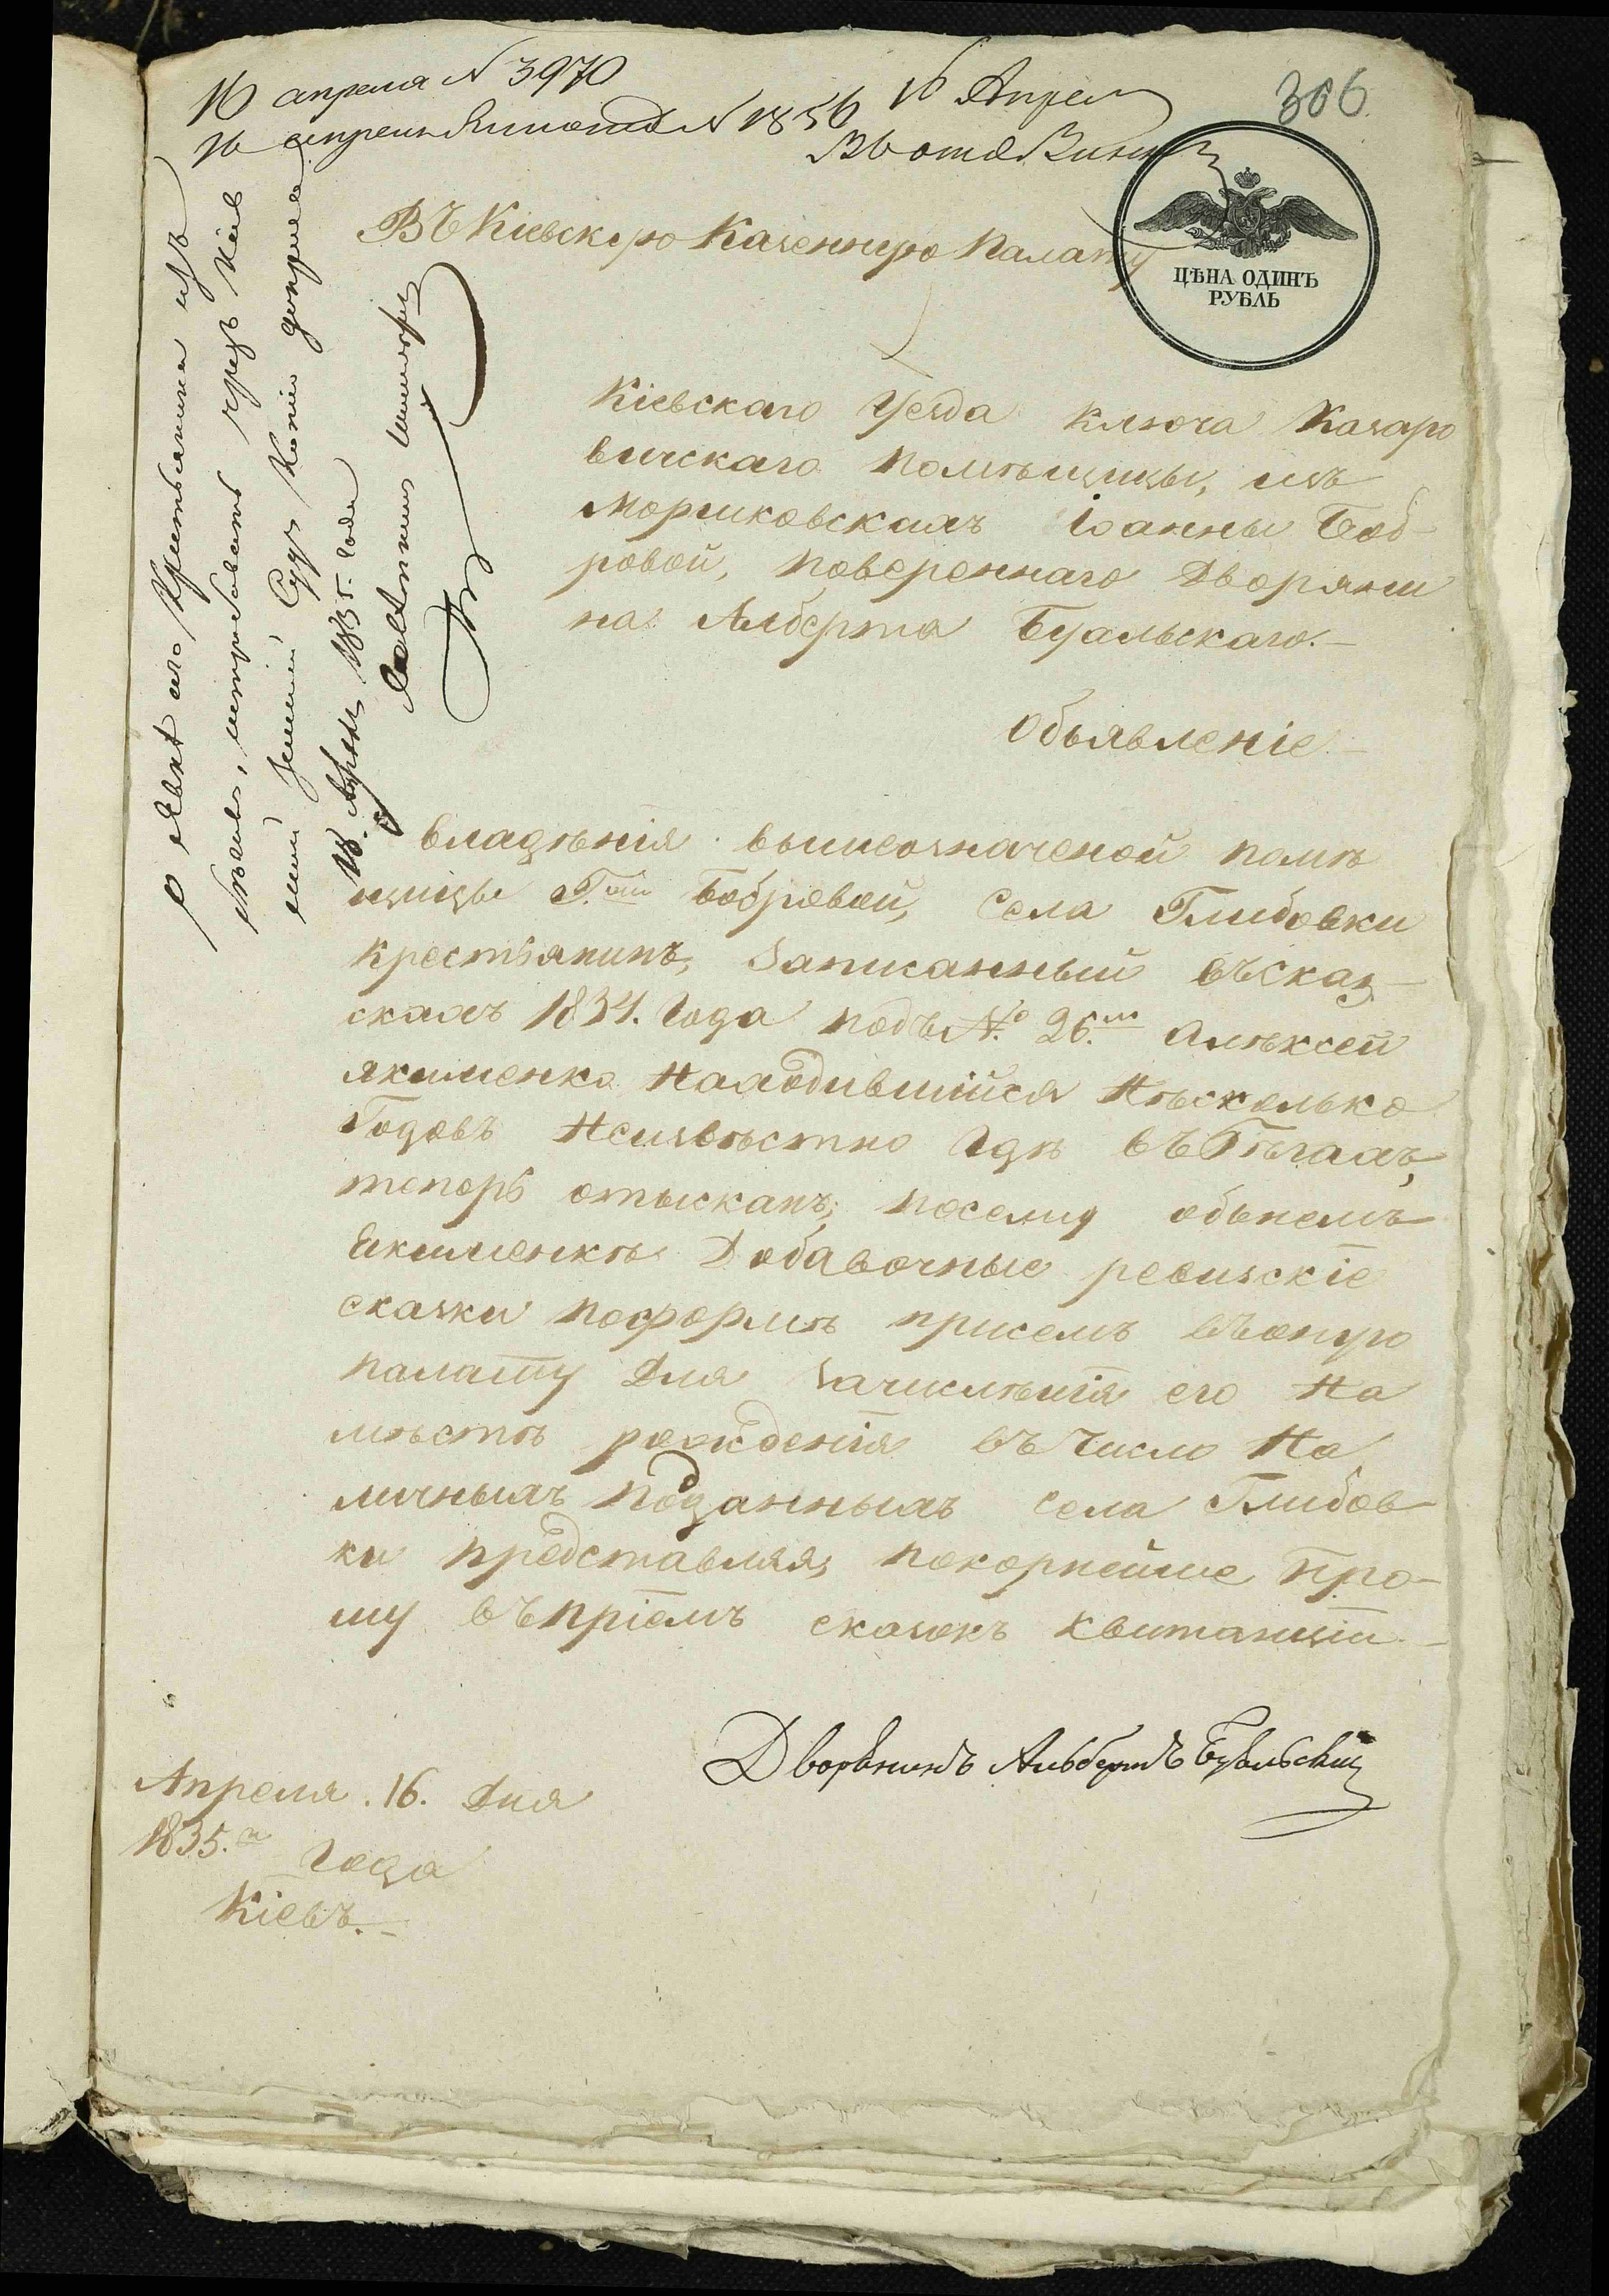 16 апреля N 3970
16 апреля N 1856
16 Апрел
306
ЦѢНА ОДИНЪ
РУБЛЬ
Въ Кіевскую Казенную Палату
Кіевскаго Уезда Ключа Казаро
вичскаго помѣщицы, изъ
Моршковскихъ Іоанны Боб-
ровой, повереннаго Дворяни
на Алберта Буальскаго.—
Объявленіе.—
Владѣнія вышеозначеной помѣ
щицы Г.жи Бобровой, Села Глибовки
крестьянинъ, Записанный въ сказ-
кахъ 1834. Года подъ N.о 26.мъ Алѣксей
якименко находившійся нѣсколько
Годовъ неизвѣстно гдѣ въ бѣгахъ,
теперь отысканъ; посему объ немъ
Екименкѣ Добавочные ревизскіе
сказки по формѣ при семъ въ оную
палату Для зачислѣнія его на
мѣстѣ рожденія въ число на
личныхъ подданныхъ села Глибов-
ки представляя, покорнейше про-
шу въ пріемѣ сказокъ квитанціи.—
Дворянинъ Альбертъ Буяльскій
Апреля. 16. Дня
1835.го Года
Кіевъ.—
О явкѣ его Крестьянина изъ
бѣговъ, истребовать чрезъ Кіев
скій Земскій Судъ
18. Апреля 1835. Года